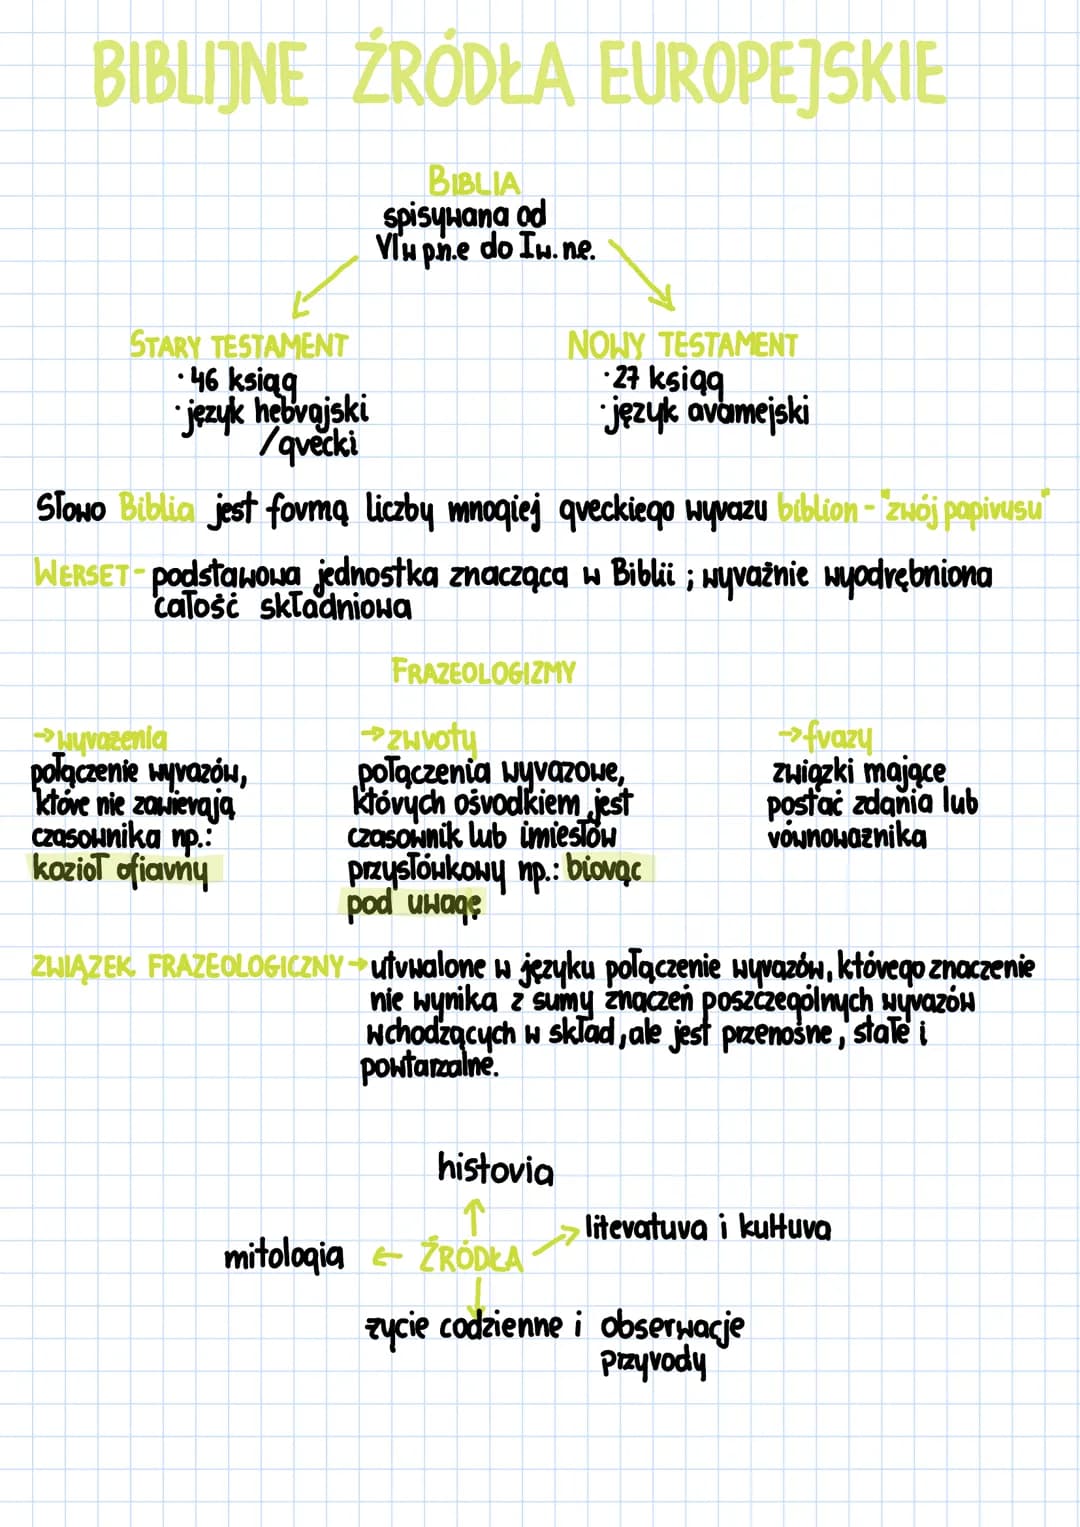 BIBLIJNE ŹRÓDŁA EUROPEJSKIE
BIBLIA
spisywana od
VIw p.n.e do Iw. n.e.
STARY TESTAMENT
· 46 ksiąg
· język hebrajski
/grecki
NOWY TESTAMENT
· 27 ksiąg
· język aramejski
Słowo Biblia jest formą liczby mnogiej greckiego wyrazu biblion - "zwój papirusu"
WERSET - podstawowa jednostka znacząca w Biblii ; wyraźnie wyodrębniona
całość składniowa
FRAZEOLOGIZMY
→ wyrażenia
połączenie wyrazów,
które nie zawierają
czasownika np.:
kozioł ofiarny
→ zwroty
połączenia wyrazowe,
których ośrodkiem jest
czasownik lub imiesłów
przysłówkowy np.: biorąc
pod uwagę
→ frazy
związki mające
postać zdania lub
równoważnika
ZWIĄZEK FRAZEOLOGICZNY → utrwalone w języku połączenie wyrazów, którego znaczenie
nie wynika z sumy znaczeń poszczególnych wyrazów
wchodzących w skład, ale jest przenośne, stałe i
powtarzalne.
historia
literatura i kultura
mitologia ← ŹRÓDŁA
życie codzienne i obserwacje
przyrody